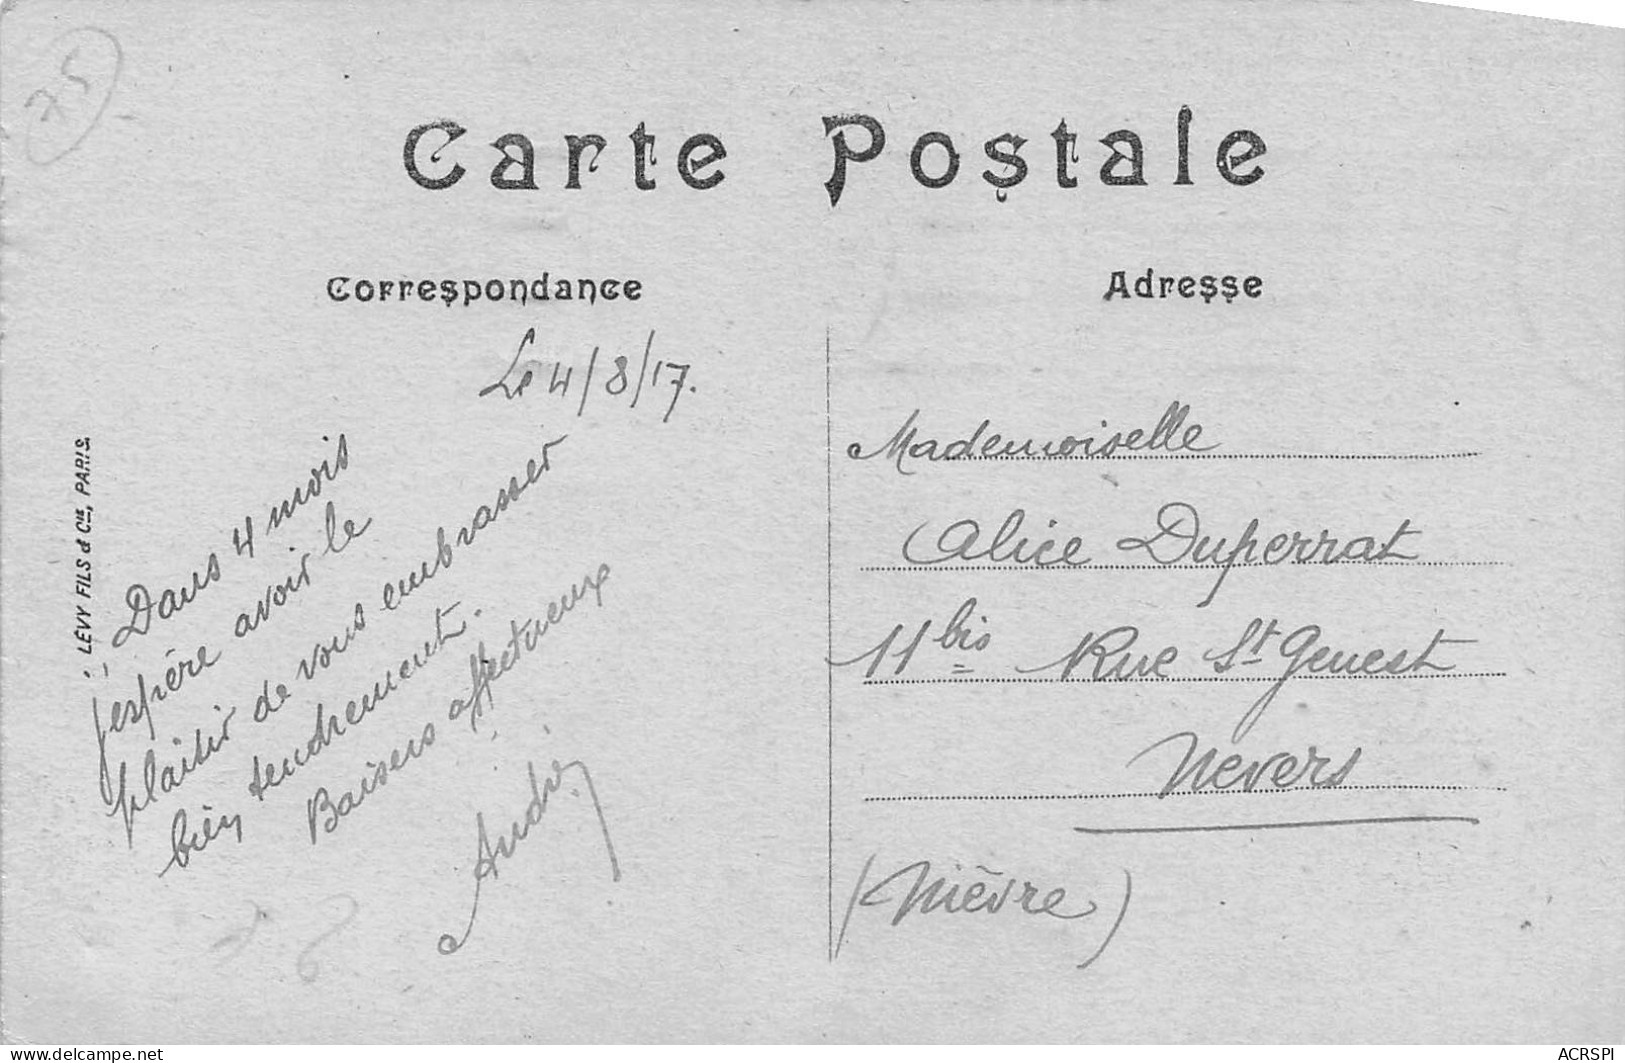 75
Carte Postale
Correspondance
Adresse
Le 4/8/17.
Dans 4 mois
j'espère avoir le
plaisir de vous embrasser
bien tendrement.
Baisers affectueux
André
LEVY FILS & Cie, PARIS
Mademoiselle
Alice Duperrat
11 bis Rue St Genest
Nevers
(Nièvre)
www.delcampe.net
ACRSPI